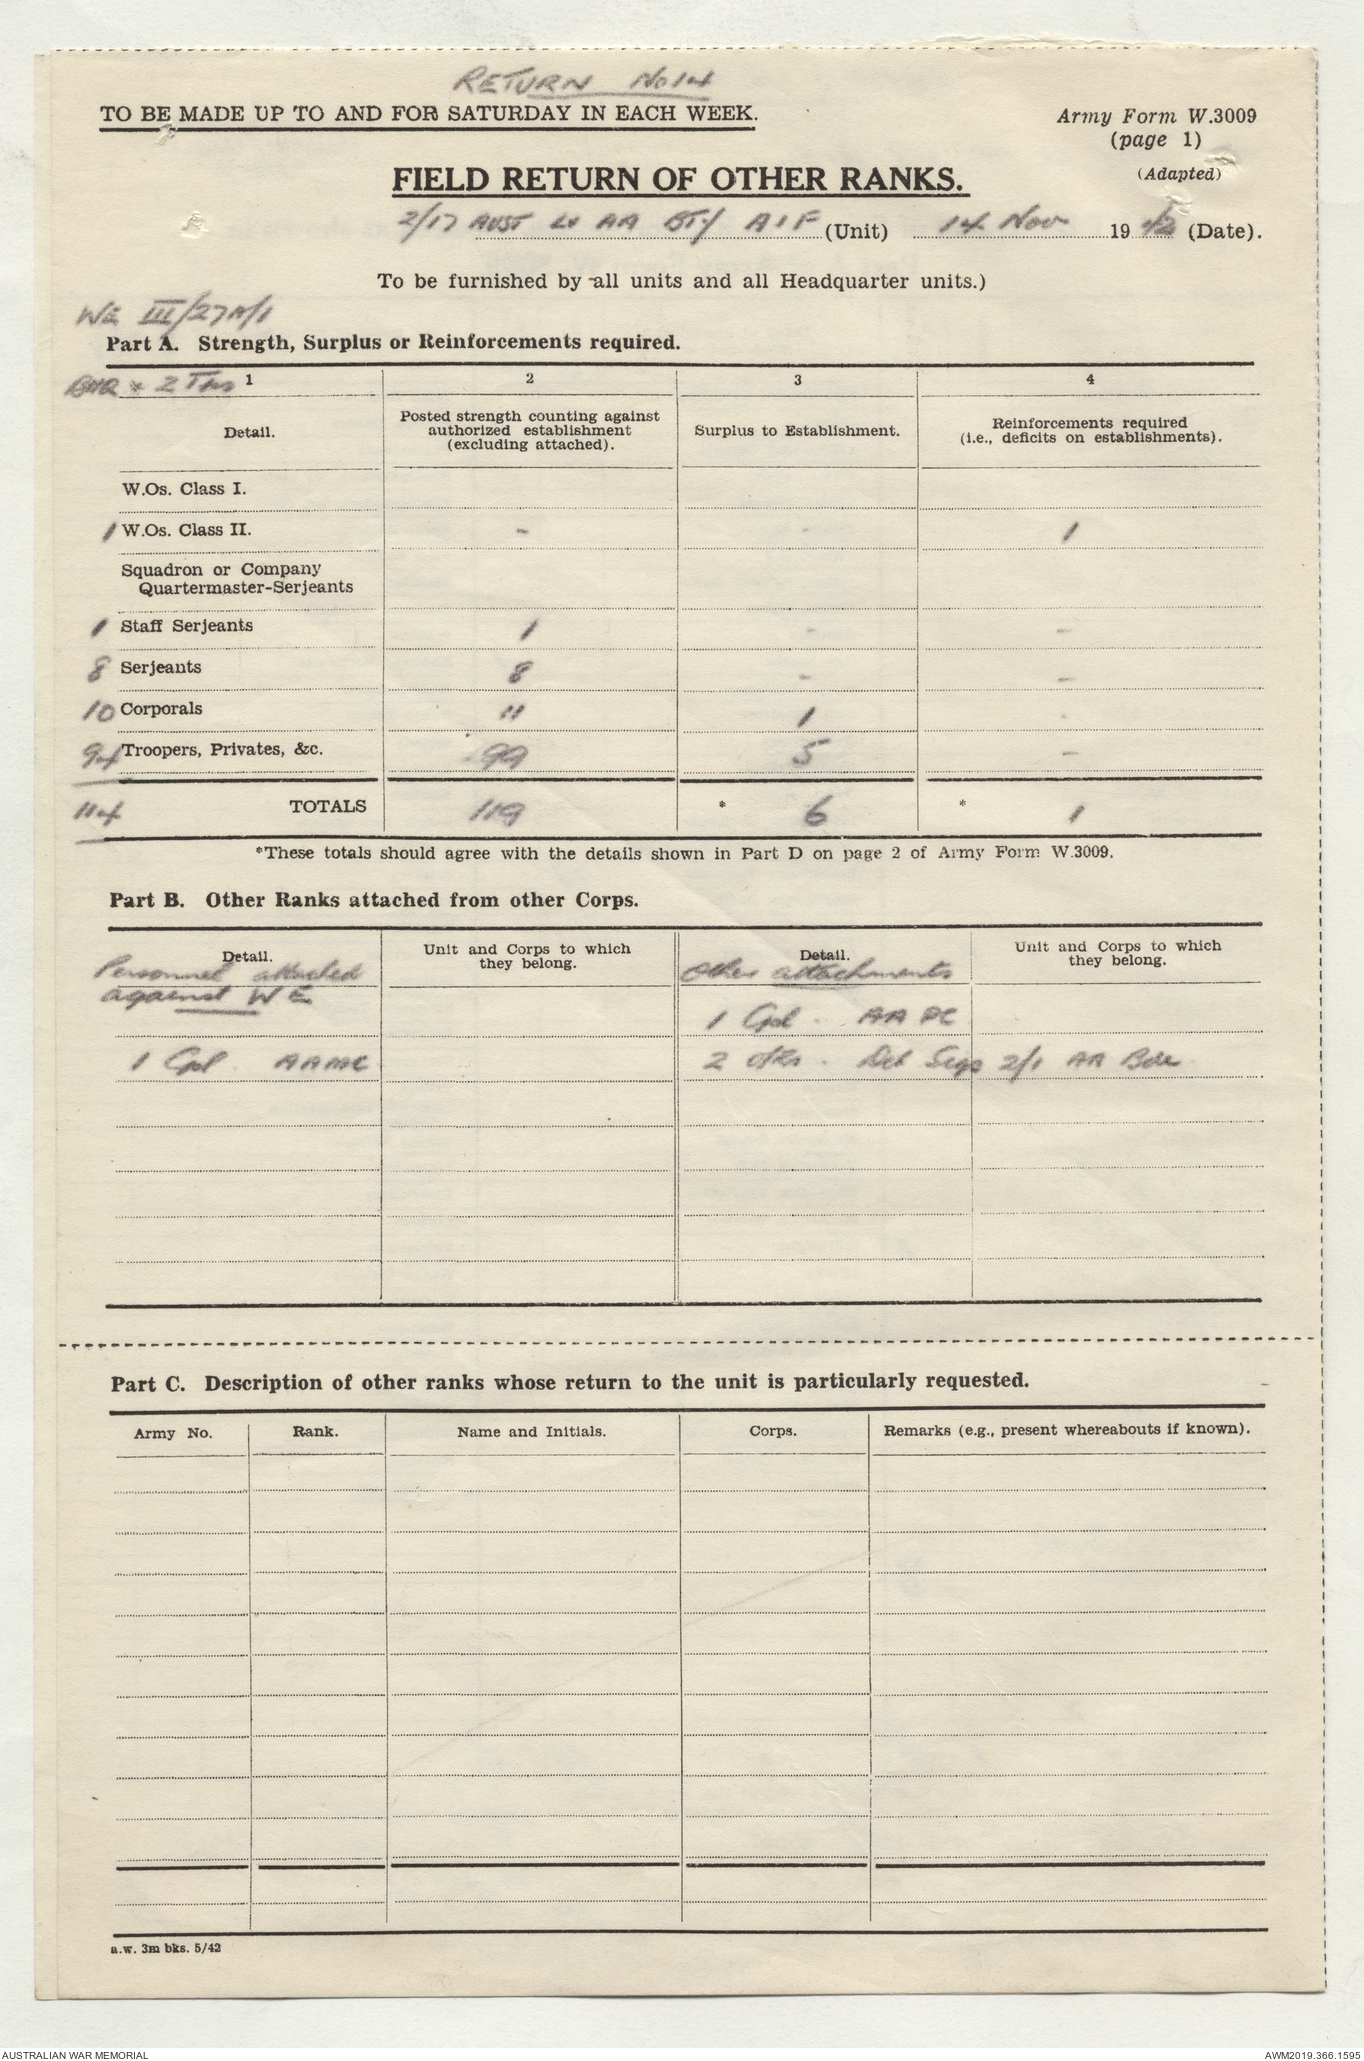 RETURN No 14
TO BE MADE UP TO AND FOR SATURDAY IN EACH WEEK.
Army Form W.3009
(page 1)
(Adapted)
FIELD RETURN OF OTHER RANKS.
2/17 AUST Lt AA BTY AIF (Unit) 14 Nov 1942 (Date).
To be furnished by all units and all Headquarter units.)
WE III/27A/1
Part A. Strength, Surplus or Reinforcements required.
BHQ + 2 Tps 1 2 3 4
Detail.
Posted strength counting against
authorized establishment
(excluding attached).
Surplus to Establishment.
Reinforcements required
(i.e., deficits on establishments).
W.Os. Class I.
1 W.Os. Class II. - - 1
Squadron or Company
Quartermaster-Serjeants
1 Staff Serjeants 1 - -
8 Serjeants 8 - -
10 Corporals 11 1 -
94 Troopers, Privates, &c. 99 5 -
114 TOTALS 119 * 6 * 1
*These totals should agree with the details shown in Part D on page 2 of Army Form W.3009.
Part B. Other Ranks attached from other Corps.
Detail.
Unit and Corps to which
they belong.
Detail.
Unit and Corps to which
they belong.
Personnel attached
against WE
Other attachments
1 Cpl. AAPC
1 Cpl. AAMC
2 O/Rs. Det Sigs 2/1 AA Bde
Part C. Description of other ranks whose return to the unit is particularly requested.
Army No. Rank. Name and Initials. Corps. Remarks (e.g., present whereabouts if known).
a.w. 3m bks. 5/42
AUSTRALIAN WAR MEMORIAL AWM2019.366.1595